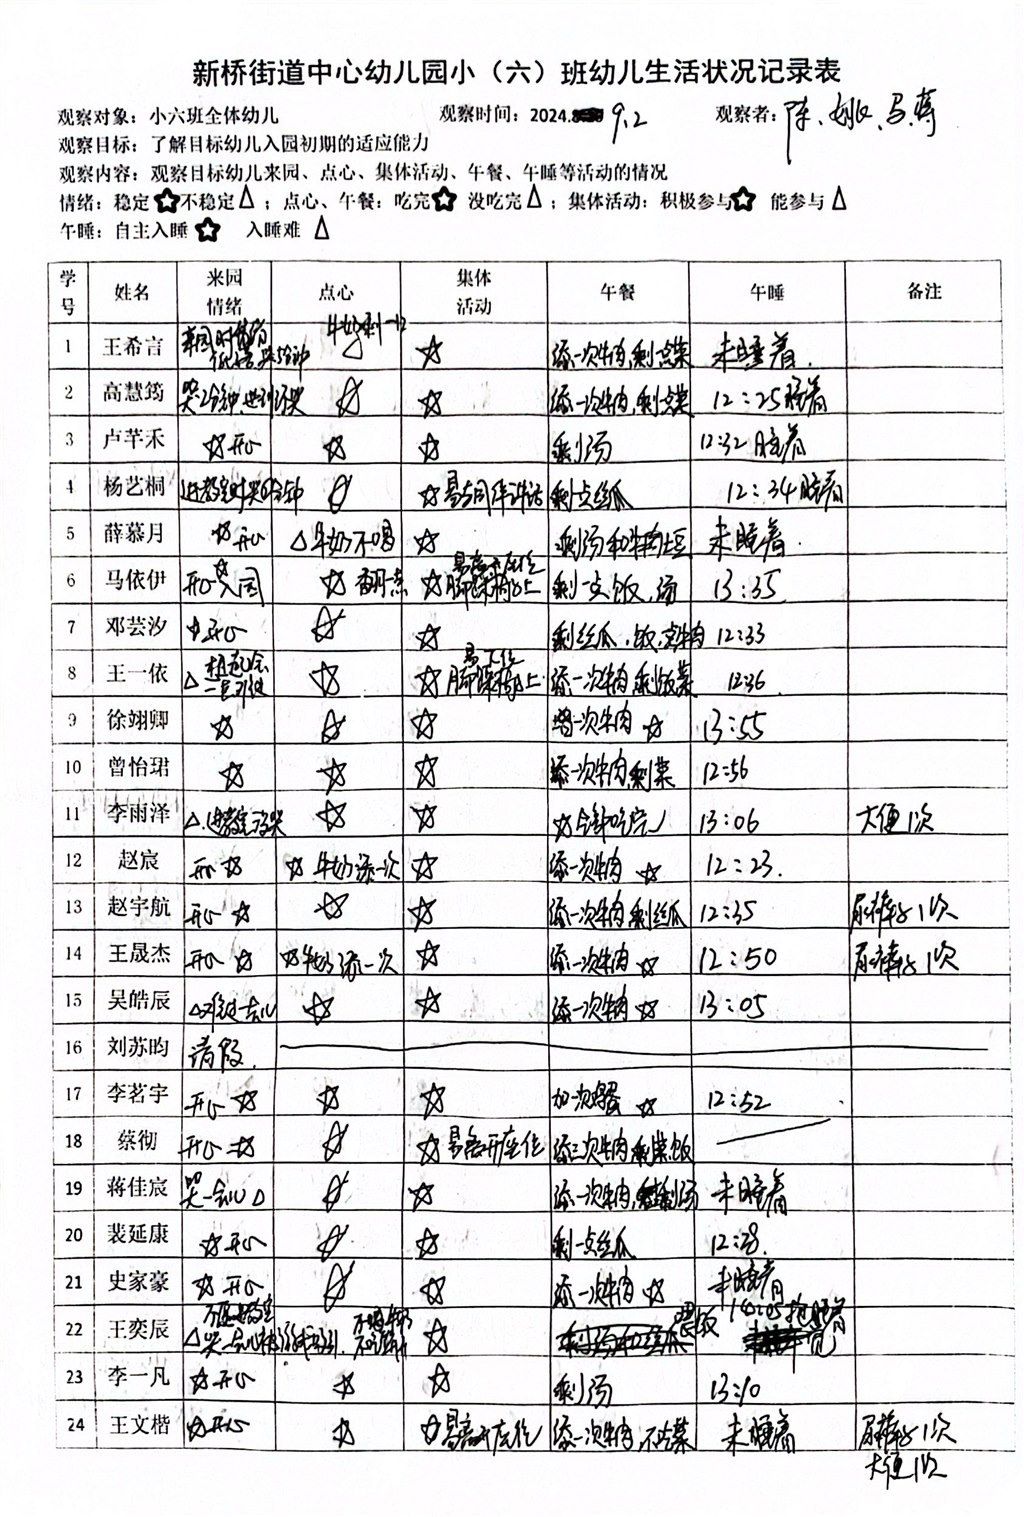 新桥街道中心幼儿园小（六）班幼儿生活状况记录表
观察对象：小六班全体幼儿 观察时间：2024. 9.2 观察者：陈、姚、马、蒋
观察目标：了解目标幼儿入园初期的适应能力
观察内容：观察目标幼儿来园、点心、集体活动、午餐、午睡等活动的情况
情绪：稳定☆不稳定△；点心、午餐：吃完☆ 没吃完△；集体活动：积极参与☆ 能参与△
午睡：自主入睡☆ 入睡难△
学号 姓名 来园情绪 点心 集体活动 午餐 午睡 备注
1 王希言 牛奶剩一口 ☆ 添一次牛肉,剩点菜 未睡着.
2 高慧筠 哭2分钟, ☆ ☆ 添一次牛肉,剩点菜 12:25睡着
3 卢芊禾 ☆开心 ☆ ☆ 剩汤 12:32睡着
4 杨艺桐 ☆ ☆易与同伴讲话 剩点丝瓜 12:34睡着
5 薛慕月 ☆开心 △牛奶不喝 ☆ 剩汤和牛肉土豆 未睡着.
6 马依伊 开心入园☆ ☆ ☆易离开座位 脚踩椅子上 剩一点饭、汤 13:35
7 邓芸汐 ☆开心 ☆ ☆ 剩丝瓜、饭、牛肉 12:33
8 王一依 △ ☆ ☆易下位 脚踩椅子上 添一次牛肉,剩饭菜 12:36
9 徐翊卿 ☆ ☆ ☆ 增一次牛肉☆ 13:55
10 曾怡珺 ☆ ☆ ☆ 添一次牛肉,剩菜 12:56
11 李雨泽 △.进教室 ☆ ☆ ☆全部吃完 13:06 大便1次
12 赵宸 开心☆ ☆牛奶添一次 ☆ 添一次牛肉☆ 12:23.
13 赵宇航 开心☆ ☆ ☆ 添一次牛肉,剩丝瓜 12:35 尿裤子1次
14 王晟杰 开心☆ ☆牛奶添一次 ☆ 添一次牛肉☆ 12:50 尿裤子1次
15 吴皓辰 △难过一会儿 ☆ ☆ 添一次牛肉☆ 13:05
16 刘苏昀 请假.
17 李茗宇 开心☆ ☆ ☆ 加一次鸡蛋☆ 12:52
18 蔡彻 开心☆ ☆ ☆易离开座位 添三次牛肉,剩菜、饭
19 蒋佳宸 哭一会儿△ ☆ ☆ 添一次牛肉,剩汤 未睡着
20 裴延康 ☆开心 ☆ ☆ 剩一点丝瓜 12:28.
21 史家豪 ☆开心 ☆ ☆ 添一次牛肉☆ 未睡着
22 王奕辰 △哭一会儿 ☆ 喂饭 14:05抱睡着
23 李一凡 ☆开心 ☆ ☆ 剩汤 13:10
24 王文楷 ☆开心 ☆ ☆易离开座位 添一次牛肉,不吃菜 未睡着 尿裤子1次
大便1次